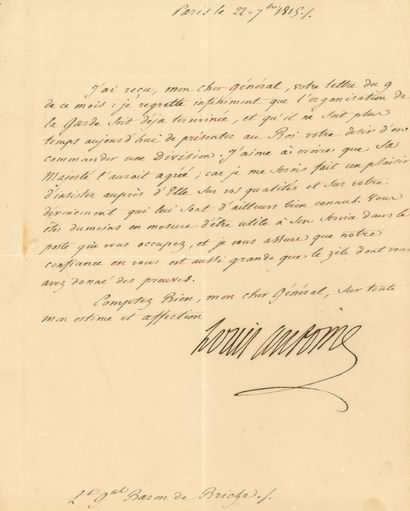 Paris le 22 7bre 1815./.
J'ai reçu, mon cher Général, votre lettre du 9
de ce mois : je regrette infiniment que l'organisation de
la Garde soit déja terminée, et qu'il ne soit plus
temps aujourd'hui de présenter au Roi votre désir d'en
commander une division. J'aime à croire que Sa
Majesté l'auroit agréé ; car je me serois fait un plaisir
d'insister auprès d'Elle sur vos qualités et sur votre
dévouement qui lui sont d'ailleurs bien connus. Vous
êtes dumoins en mesure d'être utile à Son Service dans le
poste que vous occupez, et je vous assure que notre
confiance en vous est aussi grande que le zèle dont vous
avez donné des preuves.
Comptez Bien, mon cher Général, sur toute
mon estime et affection
Louis Antoine
Lt gal Baron de Briche./.